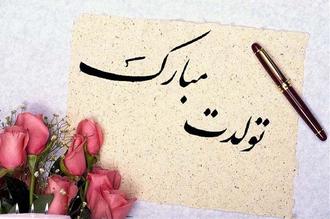 تولدت
مبارک